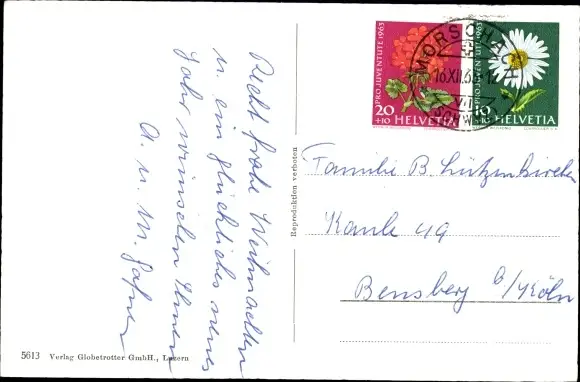 Recht frohe Weihnachten
u. ein glückliches neues
Jahr wünschen Ihnen
A. u. M.
5613 Verlag Globetrotter GmbH., Luzern
Reproduktion verboten
PRO JUVENTUTE 1963
20
+10 HELVETIA
PRO JUVENTUTE 1963
10
+10 HELVETIA
MORSCHACH
16.XII.63
(SCHWYZ)
Familie B. Lützenkirchen
Kaule 49
Bensberg b/Köln